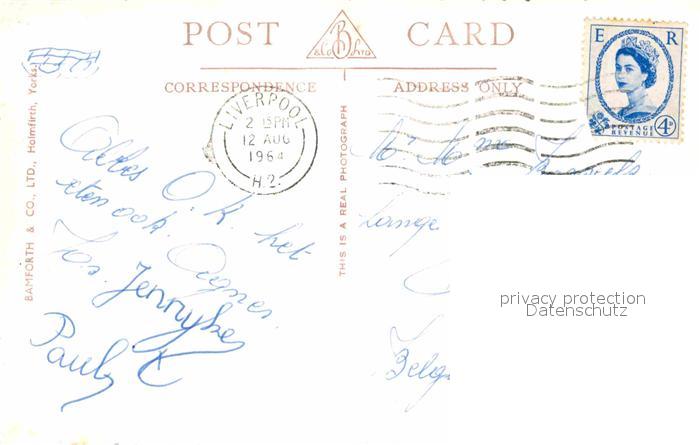 POST CARD
B & Co Ltd
CORRESPONDENCE
ADDRESS ONLY
E R
POSTAGE
REVENUE
4D
LIVERPOOL
2 15 PM
12 AUG
1964
H.2.
BAMFORTH & CO., LTD., Holmfirth, Yorks.
THIS IS A REAL PHOTOGRAPH
Alles O.K. het
eten ook. Agnes.
Jos. Jennyke
Paul
Mr. & Mme
Lange
Belg
privacy protection
Datenschutz